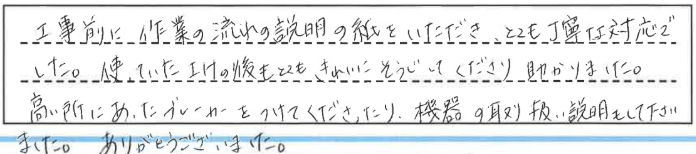 工事前に作業の流れの説明の紙をいただき、とても丁寧な対応で
した。使っていた上げの後もとてもきれいにそうじしてくださり助かりました。
高い所にあったブレーカーをつけてくださったり、機器の取り扱い説明もして下さい
ました。ありがとうございました。